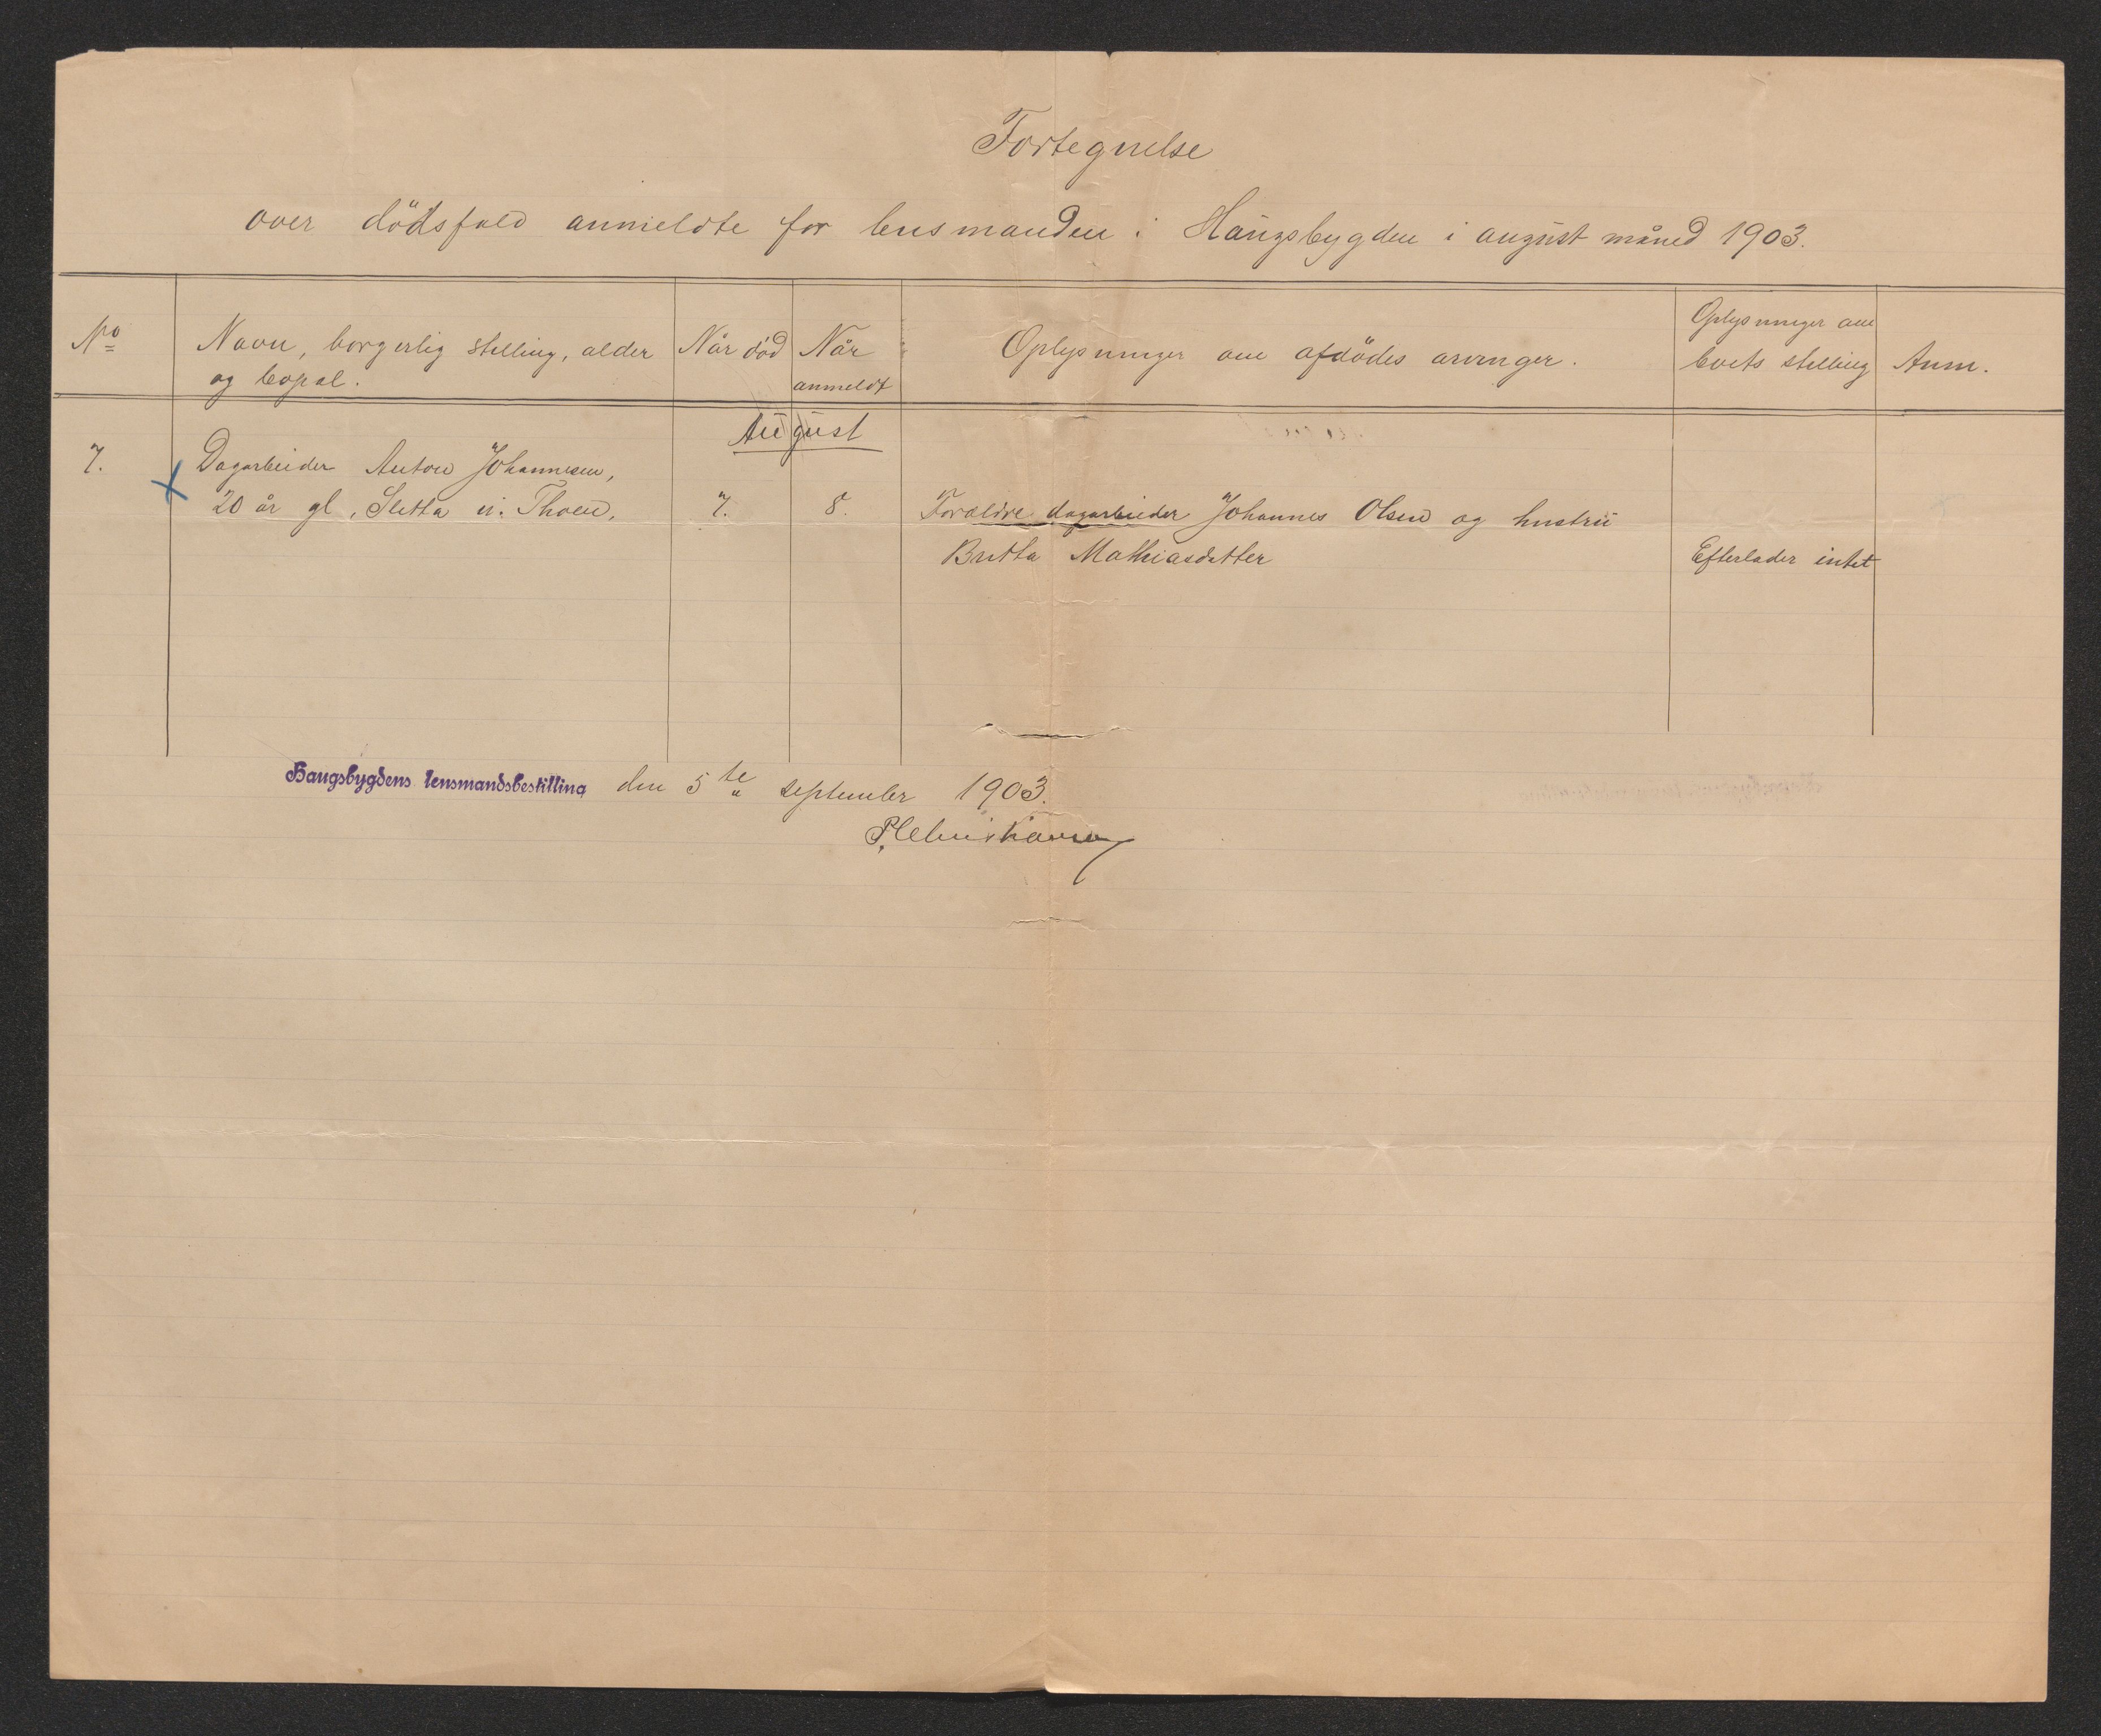 Fortegnelse
over dödsfald anmeldte for lensmanden i Haugsbygden i august måned 1903.
No Navn, borgerlig stilling, alder og bopæl. Når död Når anmeldt Oplysninger om afdödes arvinger. Oplysninger om boets stilling Anm.
August
7. Dagarbeider Anton Johannesen,
20 år gl, Sletta u. Thoen. 7. 8. Forældre dagarbeider Johannes Olsen og hustru
Britta Mathiasdatter Efterlader intet
Haugsbygdens lensmandsbestilling den 5te september 1903.
P. Christiansen